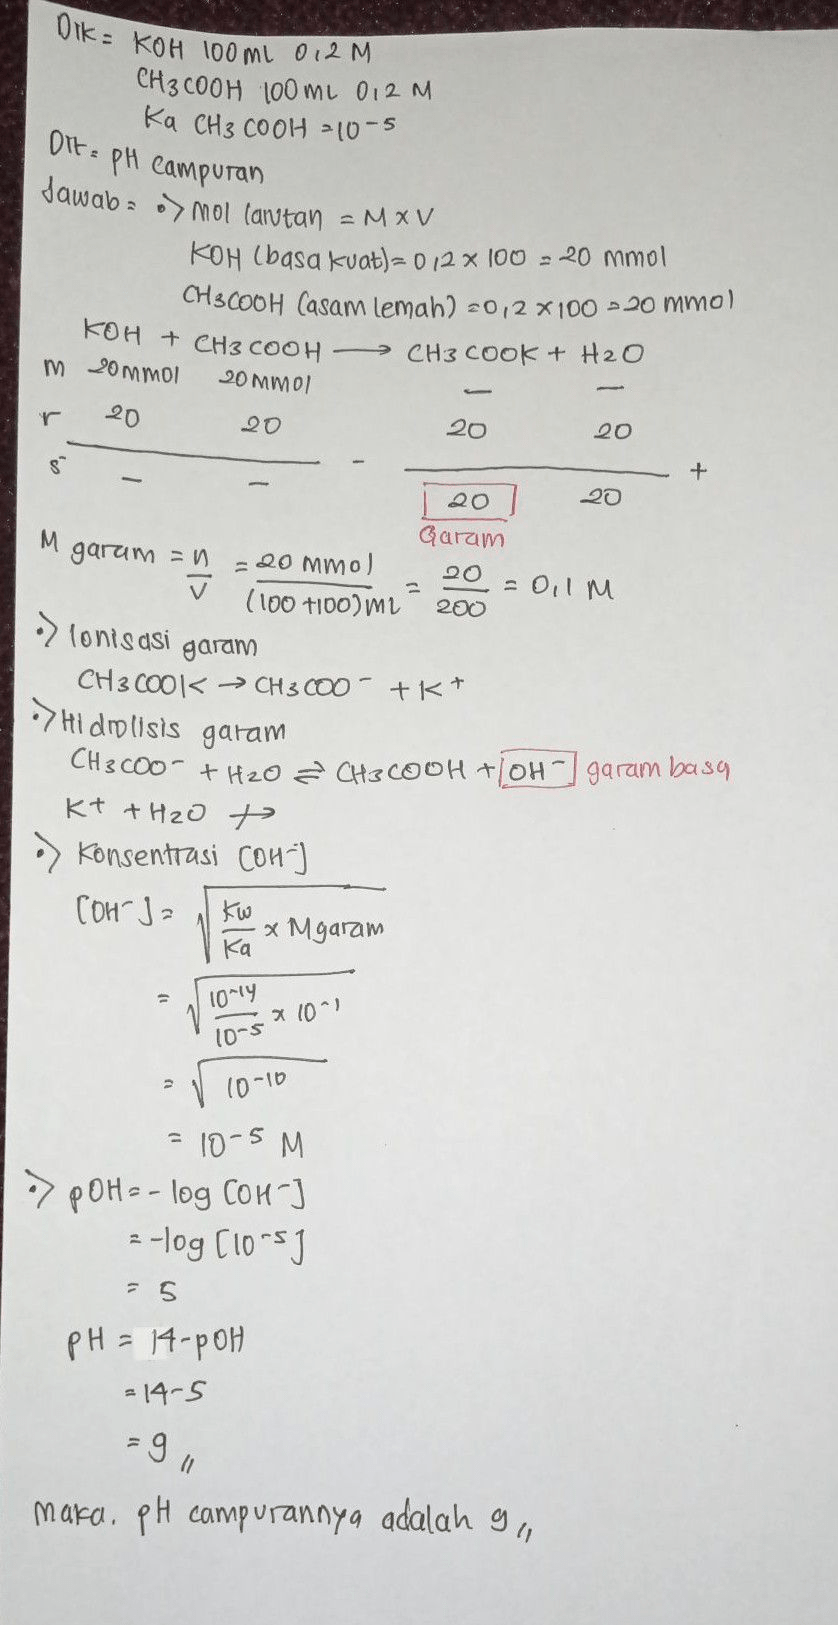 Dik = KOH 100 ml 0,2 M
CH3COOH 100 ml 0,2 M
Ka CH3COOH = 10-5
Dit = pH campuran
Jawab = •> mol larutan = M x V
KOH (basa kuat) = 0,2 x 100 = 20 mmol
CH3COOH (asam lemah) = 0,2 x 100 = 20 mmol
KOH + CH3COOH → CH3COOK + H2O
m 20mmol 20mmol - -
r 20 20 20 20
s - - - 20 20 +
Garam
M garam = n/V = 20 mmol/(100+100)ml = 20/200 = 0,1 M
•> Ionisasi garam
CH3COOK → CH3COO- + K+
•> Hidrolisis garam
CH3COO- + H2O ⇌ CH3COOH + OH- garam basa
K+ + H2O ↛
•> Konsentrasi [OH-]
[OH-] = √ Kw/Ka x M garam
= √ 10-14/10-5 x 10-1
= √ 10-10
= 10-5 M
•> pOH = - log [OH-]
= -log [10-5]
= 5
pH = 14-pOH
= 14-5
= 9 //
maka, pH campurannya adalah 9 //